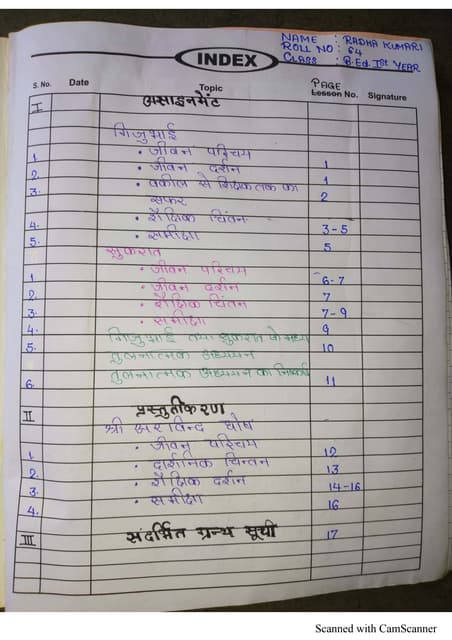 NAME : RADHA KUMARI
ROLL NO : 64
CLASS : B.Ed Ist YEAR
INDEX
S. No. Date Topic PAGE Lesson No. Signature
I असाइनमेंट
गिजुभाई
1. • जीवन परिचय 1
2. • जीवन दर्शन 1
3. • वकील से शिक्षक तक का 2
सफर
4. • शैक्षिक चिंतन 3-5
5. • समीक्षा 5
सुकरात
1 • जीवन परिचय 6-7
2. • जीवन दर्शन 7
3. • शैक्षिक चिंतन 7-9
4. • समीक्षा 9
5. गिजुभाई तथा सुकरात के मध्य 10
तुलनात्मक अध्ययन
6. तुलनात्मक अध्ययन का निष्कर्ष 11
II प्रस्तुतीकरण
श्री अरविन्द घोष
1. • जीवन परिचय 12
2. • दार्शनिक चिन्तन 13
3. • शैक्षिक दर्शन 14-16
4. • समीक्षा 16
III संदर्भित ग्रन्थ सूची 17
Scanned with CamScanner